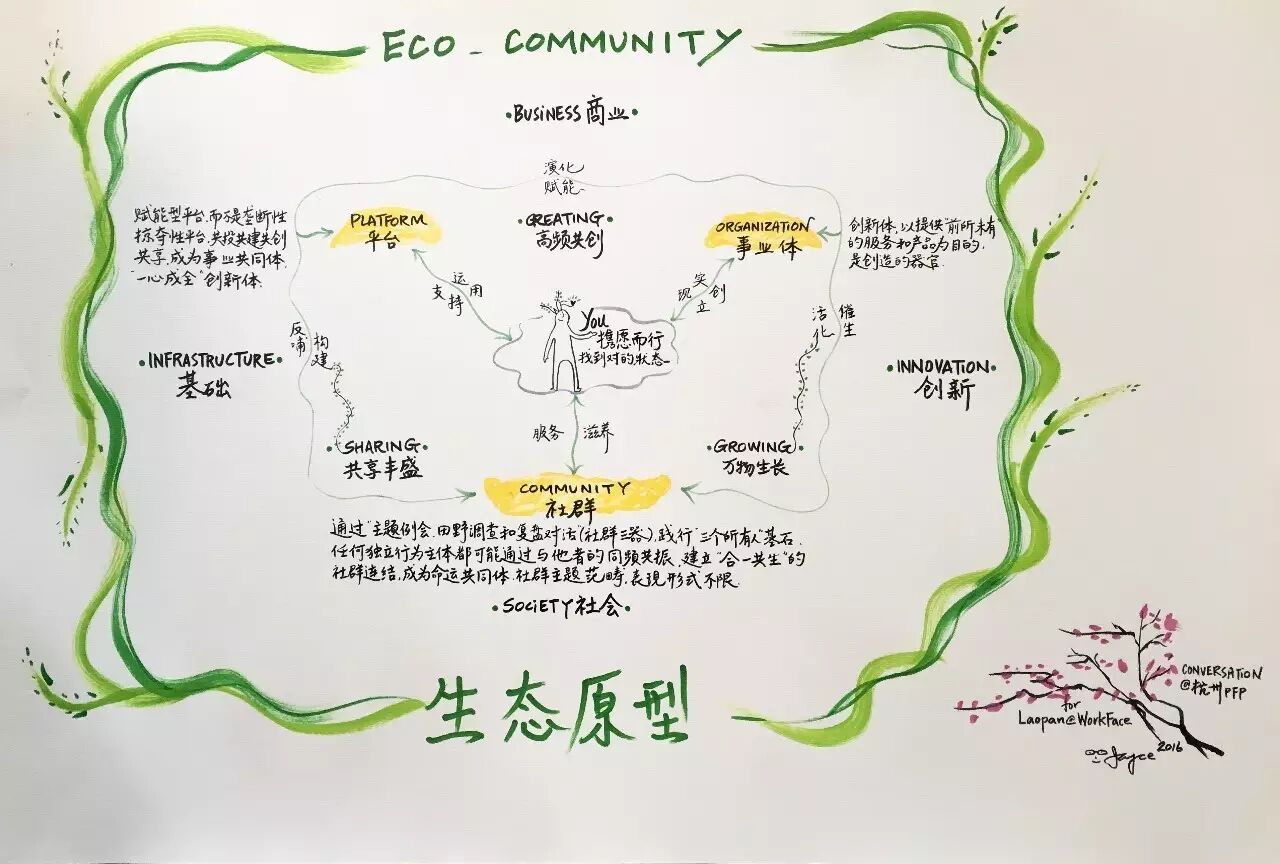 ECO - COMMUNITY
•BUSINESS 商业•
演化
赋能
赋能型平台,而不是垄断性
掠夺性平台.共投共建共创
共享,成为事业共同体.
"一心成全"创新体.
PLATFORM
平台
•CREATING•
高频共创
ORGANIZATION
事业体
创新体,以提供"前所未有"
的服务和产品为目的,
是创造的器官.
运用
支持
实创
现立
You
携愿而行
找到对的状态
反哺
构建
催生
活化
•INFRASTRUCTURE•
基础
•INNOVATION•
创新
服务 滋养
•SHARING•
共享丰盛
•GROWING•
万物生长
COMMUNITY
社群
通过"主题例会.田野调查和复盘对话"(社群三器),践行"三个所有人"基石.
任何独立行为主体都可能通过与他者的同频共振,建立"合一共生"的
社群连结,成为命运共同体.社群主题,范畴,表现形式不限.
•SOCIETY 社会•
生态原型
CONVERSATION
@杭州PFP
for
Laopan@WorkFace
Jayce 2016